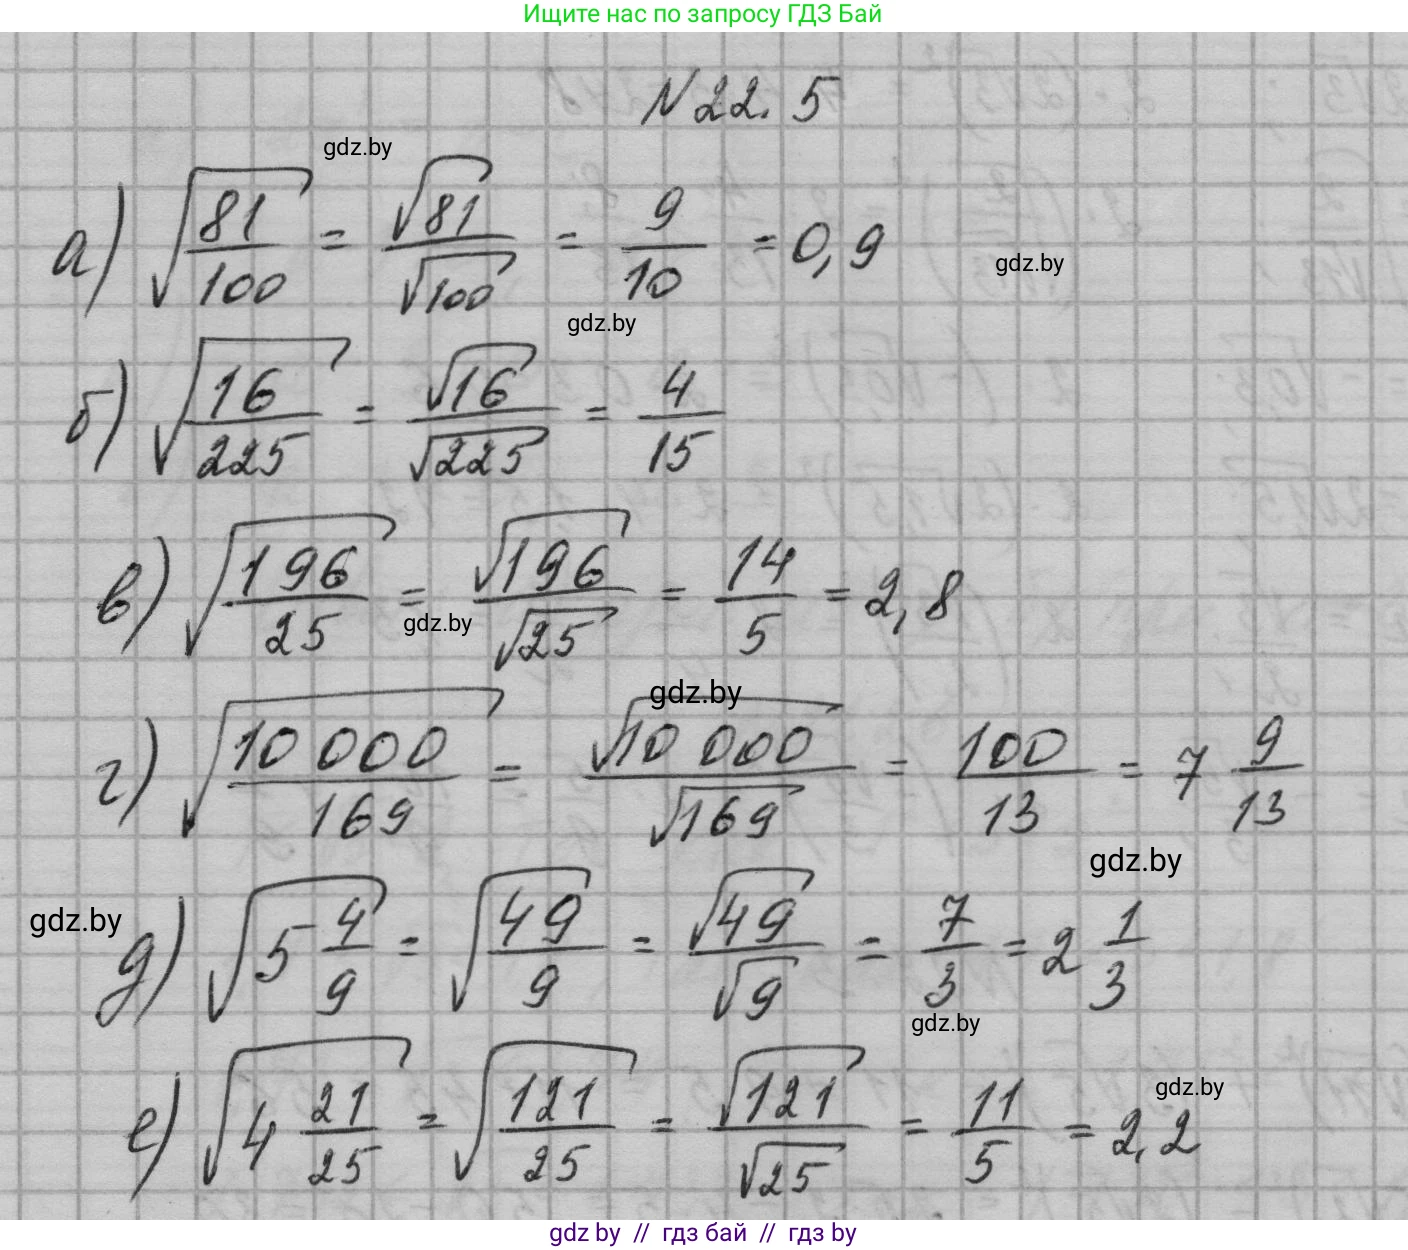 Ищите нас по запросу ГДЗ Бай
N 22. 5
gdz.by
а) √(81/100) = √81/√100 = 9/10 = 0,9
gdz.by
gdz.by
б) √(16/225) = √16/√225 = 4/15
в) √(196/25) = √196/√25 = 14/5 = 2,8
gdz.by
gdz.by
г) √(10 000/169) = √10 000/√169 = 100/13 = 7 9/13
gdz.by
gdz.by
д) √(5 4/9) = √(49/9) = √49/√9 = 7/3 = 2 1/3
gdz.by
gdz.by
е) √(4 21/25) = √(121/25) = √121/√25 = 11/5 = 2,2
gdz by // гдз бай // гдз by